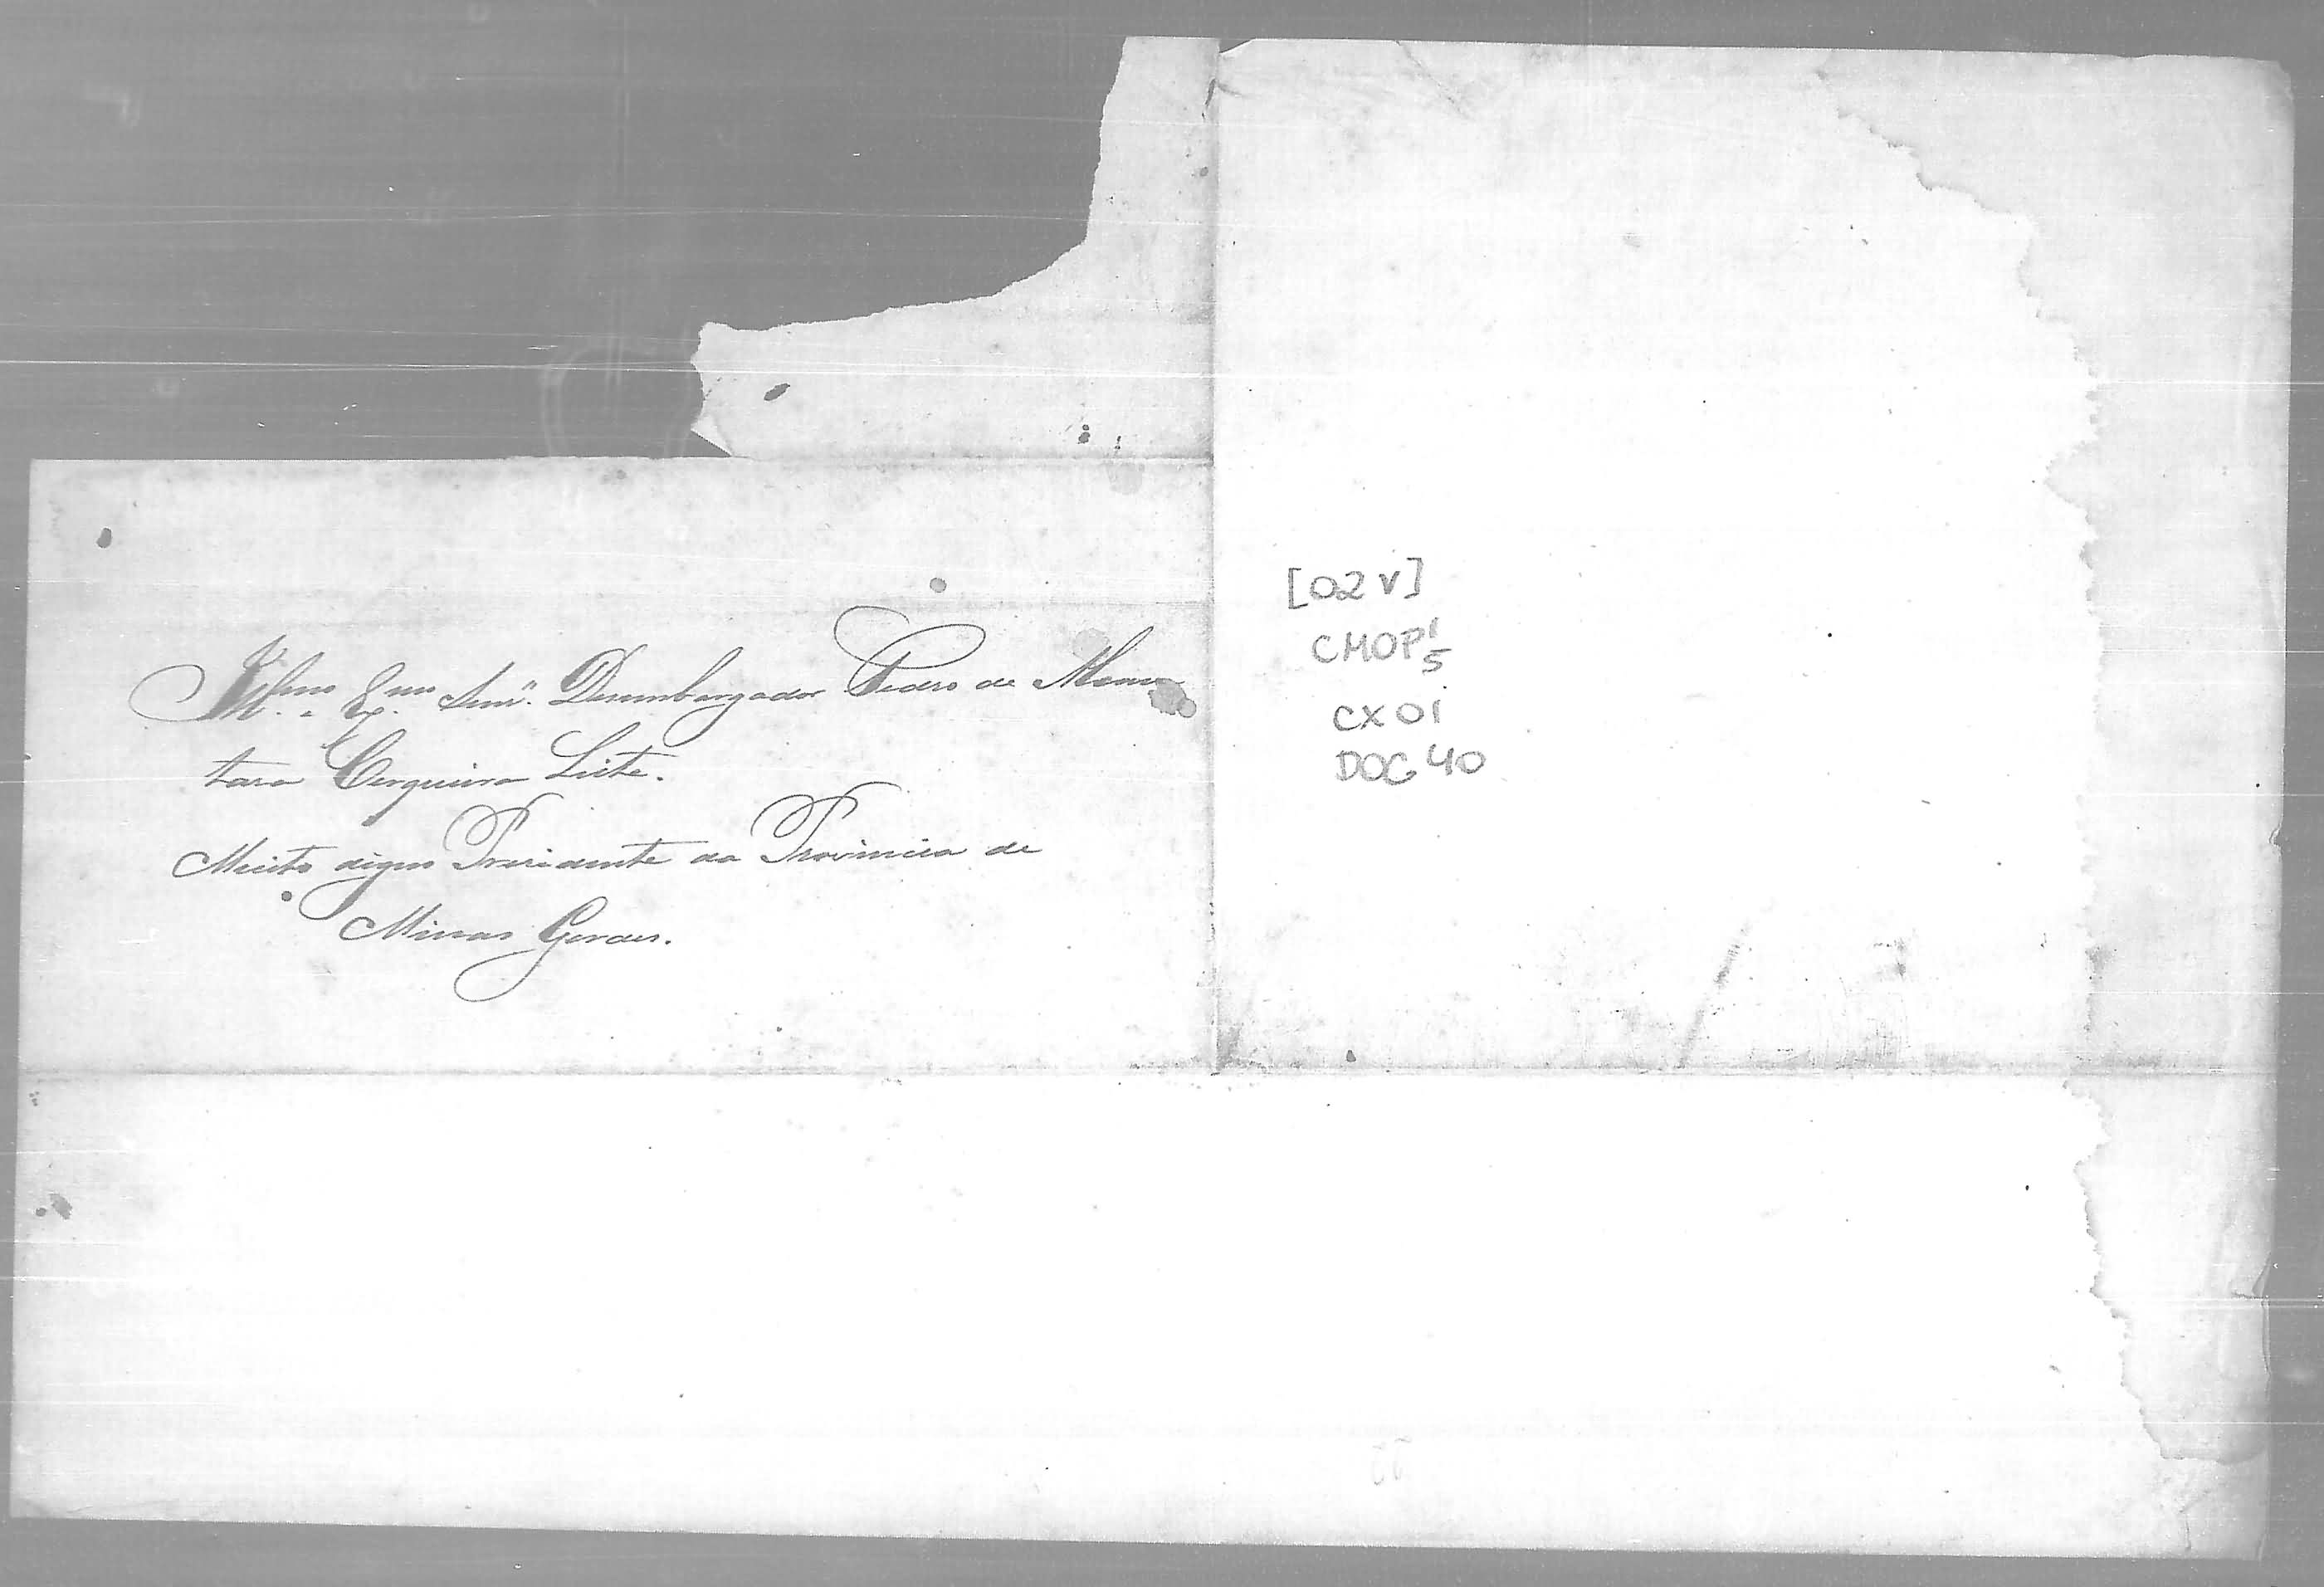 Ill.mo e Ex.mo Senr. Desembargador Pedro de Alcan
tara Cerqueira Leite.
Muito digno Presidente da Provincia de
Minas Geraes.
[02 v]
CMOP 1/5
CX 01
DOC 40